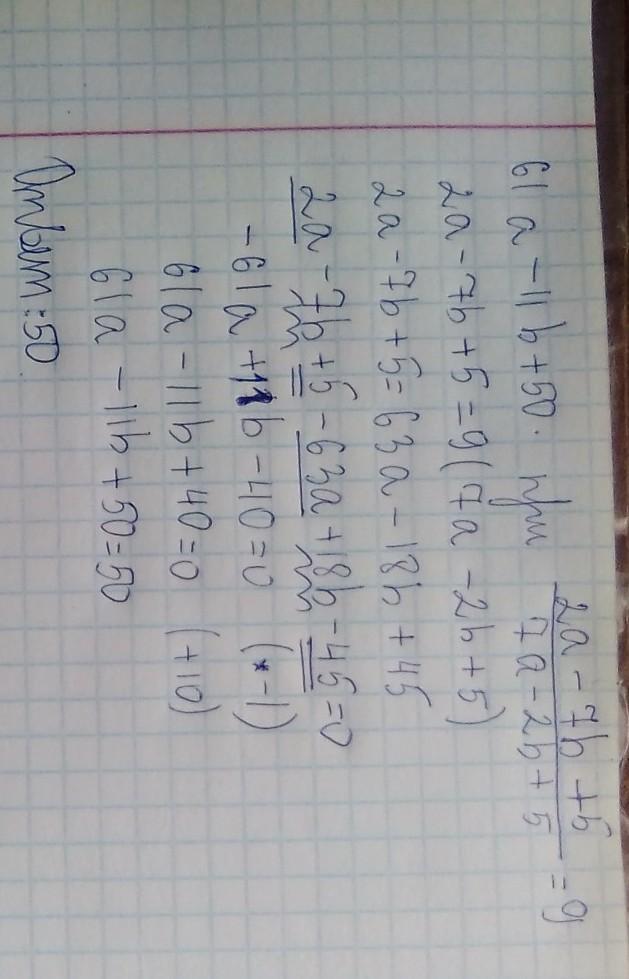 61a - 11b + 50. при (2a - 7b + 5)/(7a - 2b + 5) = 9
2a - 7b + 5 = 9(7a - 2b + 5)
2a - 7b + 5 = 63a - 18b + 45
2a - 7b + 5 - 63a + 18b - 45 = 0
-61a + 11b - 40 = 0 (* -1)
61a - 11b + 40 = 0 (+10)
61a - 11b + 50 = 50
Ответ: 50